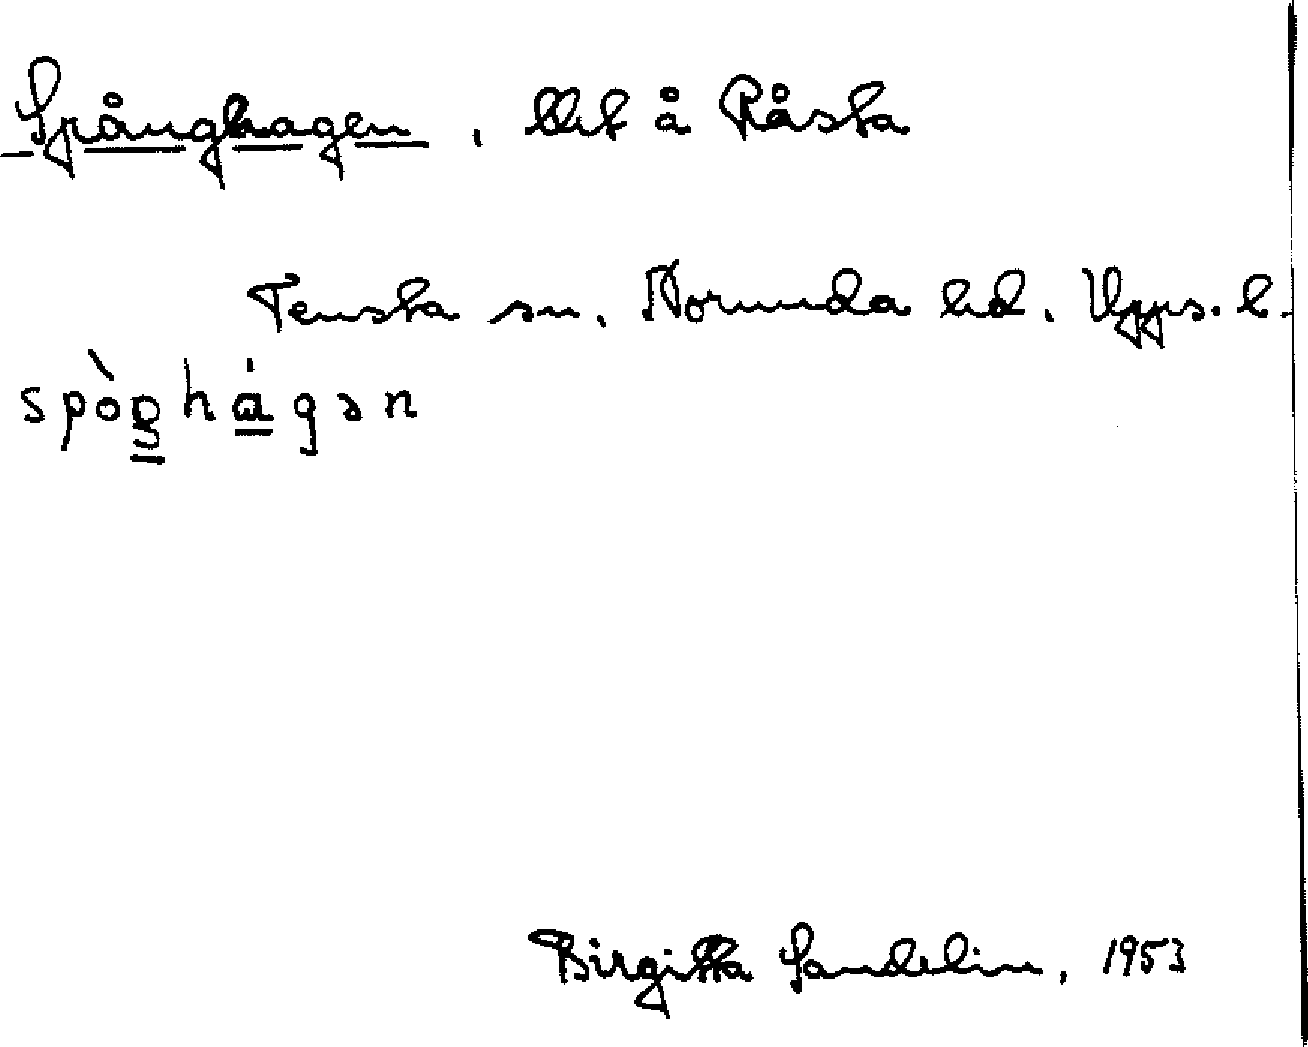 Spånghagen, bbt å Råsta
Tensta sn. Norunda hd. Upps. l.
spòŋhágən
Birgitta Sandelin, 1953